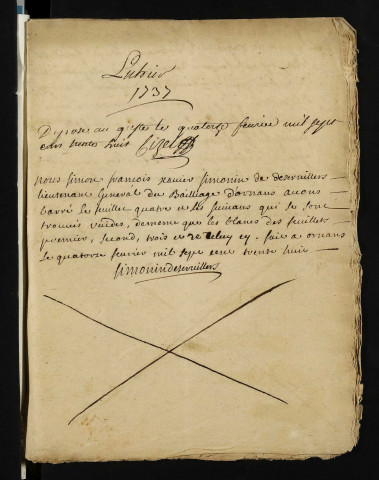 Luhier
1737
Deposé au greffe le quatorze fevrier mil sept
cens trente huit
nous simon francois xavier simonin de deservillers
lieutenant General du Bailliage dornans avons
barré le feuillet quatre et les suivans qui se sont
trouvés vuides, de meme que les blancs des feuillets
premier, second, trois et de celuy cy. fait a ornans
le quatorze fevrier mil sept cent trente huit
simonindeservillers